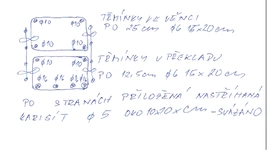 φ10 φ10 TŘMÍNKY VE VĚNCI
PO 25cm φ6 15x20cm
φ10 φ10
φ10 φ10 TŘMÍNKY V PŘEKLADU
PO 12,5cm φ6 15x20cm
PO STRANÁCH PŘILOŽENÁ NASTŘÍHANÁ
KARISÍŤ φ5 OKO 10x10xcm - SVÁZÁNO